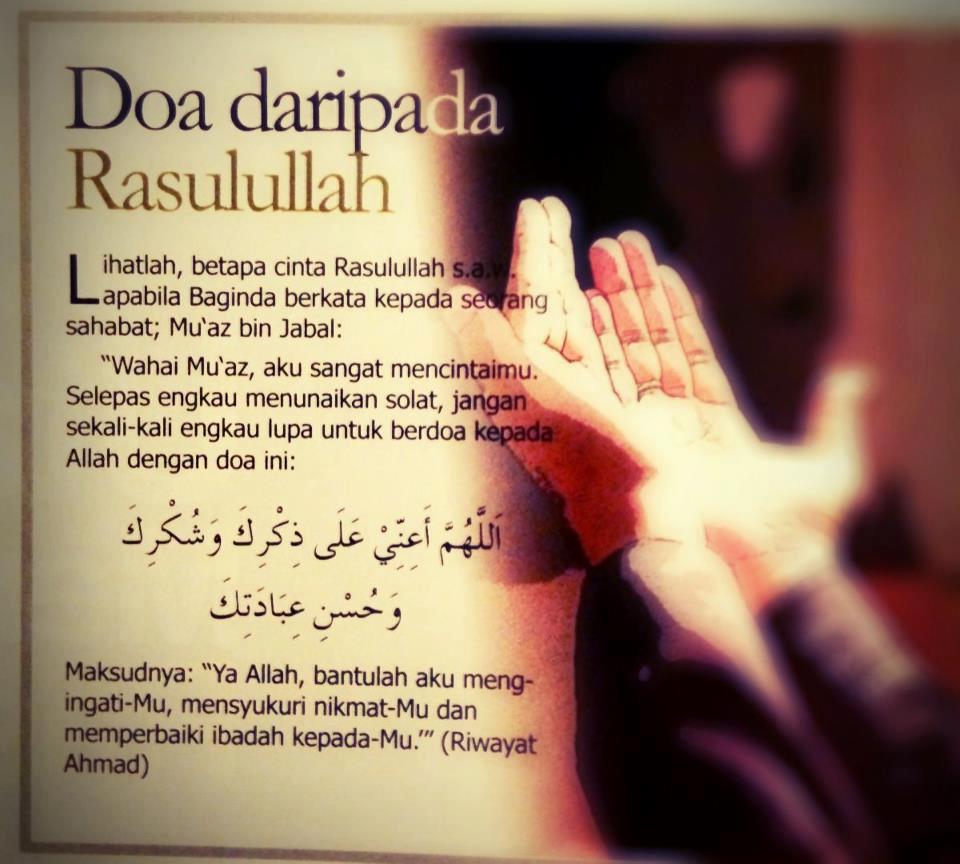 Doa daripada
Rasulullah
Lihatlah, betapa cinta Rasulullah s.a.w.
apabila Baginda berkata kepada seorang
sahabat; Mu‘az bin Jabal:
“Wahai Mu‘az, aku sangat mencintaimu.
Selepas engkau menunaikan solat, jangan
sekali-kali engkau lupa untuk berdoa kepada
Allah dengan doa ini:
اَللَّهُمَّ أَعِنِّيْ عَلَى ذِكْرِكَ وَشُكْرِكَ
وَحُسْنِ عِبَادَتِكَ
Maksudnya: “Ya Allah, bantulah aku meng-
ingati-Mu, mensyukuri nikmat-Mu dan
memperbaiki ibadah kepada-Mu.’” (Riwayat
Ahmad)